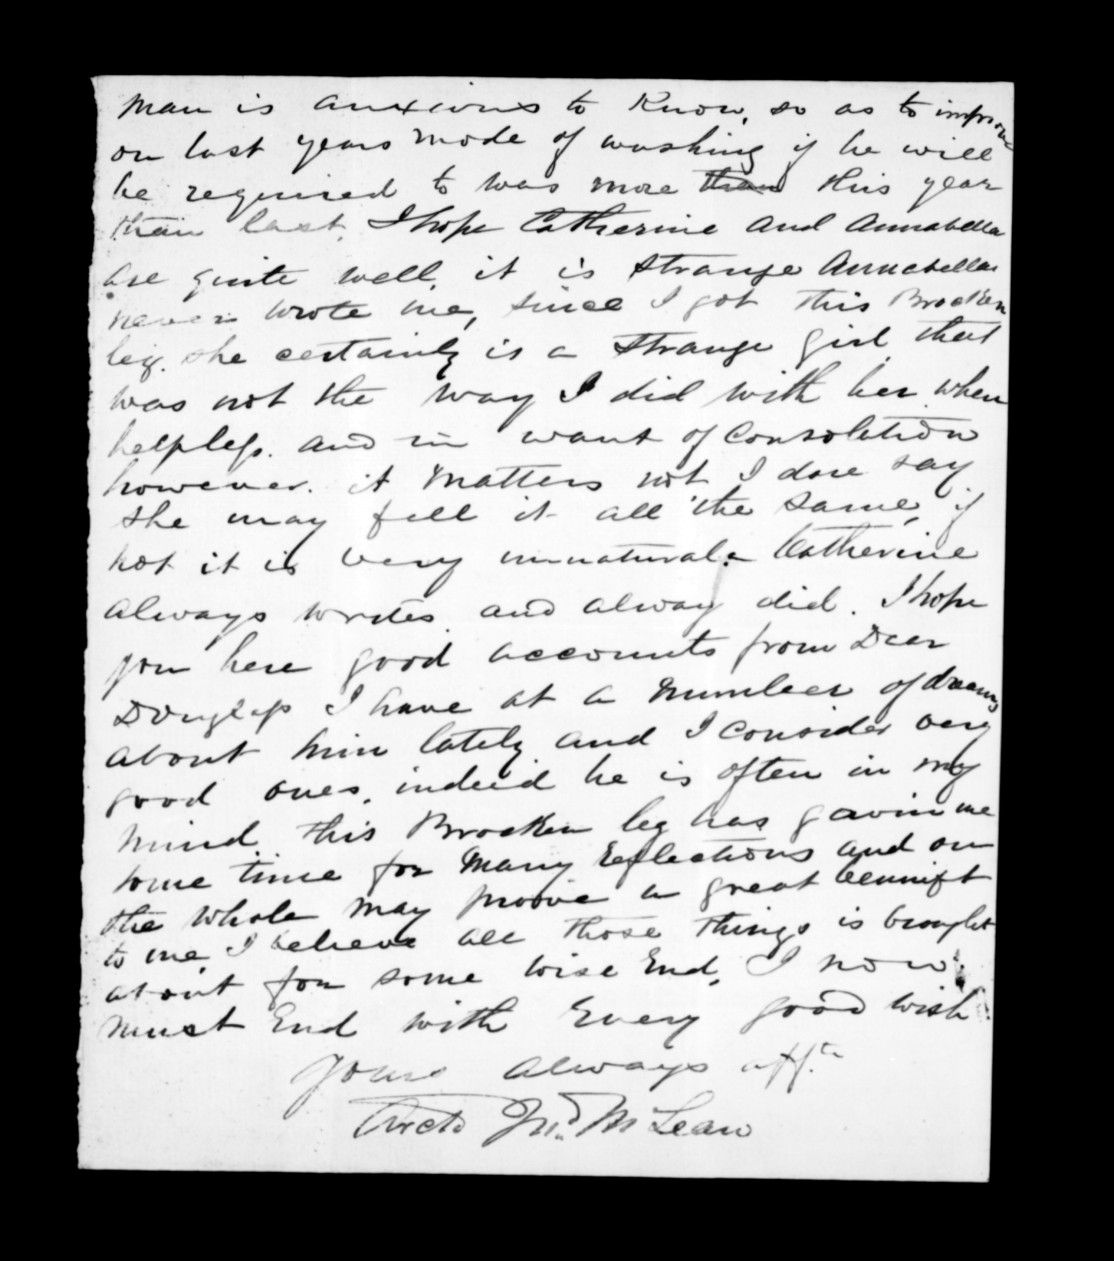 man is anxious to Know, so as to improve
on last years mode of washing if he will
be required to was more than this year
than last. I hope Catherine and Annabella
are quite well, it is strange Annabella
never wrote me, since I got this Brocken
leg. she certainly is a strange girl that
was not the way I did with her when
helpless. and in want of Consolation
however. it matters not I dare say
she may fell it all the same, if
not it is very unnatural. Catherine
always writes and alway did. I hope
you here good accounts from Dear
Douglass I have at a number of dreams
about him lately and I consider very
good ones, indeed he is often in my
mind this Brocken leg has gavin me
some time for Many Reflections and on
the whole may proove a great bennift
to me, I believe all those things is brought
about for some wise End, I now
must End with Every good wish
Yours always afft.
Archd Jno. McLean